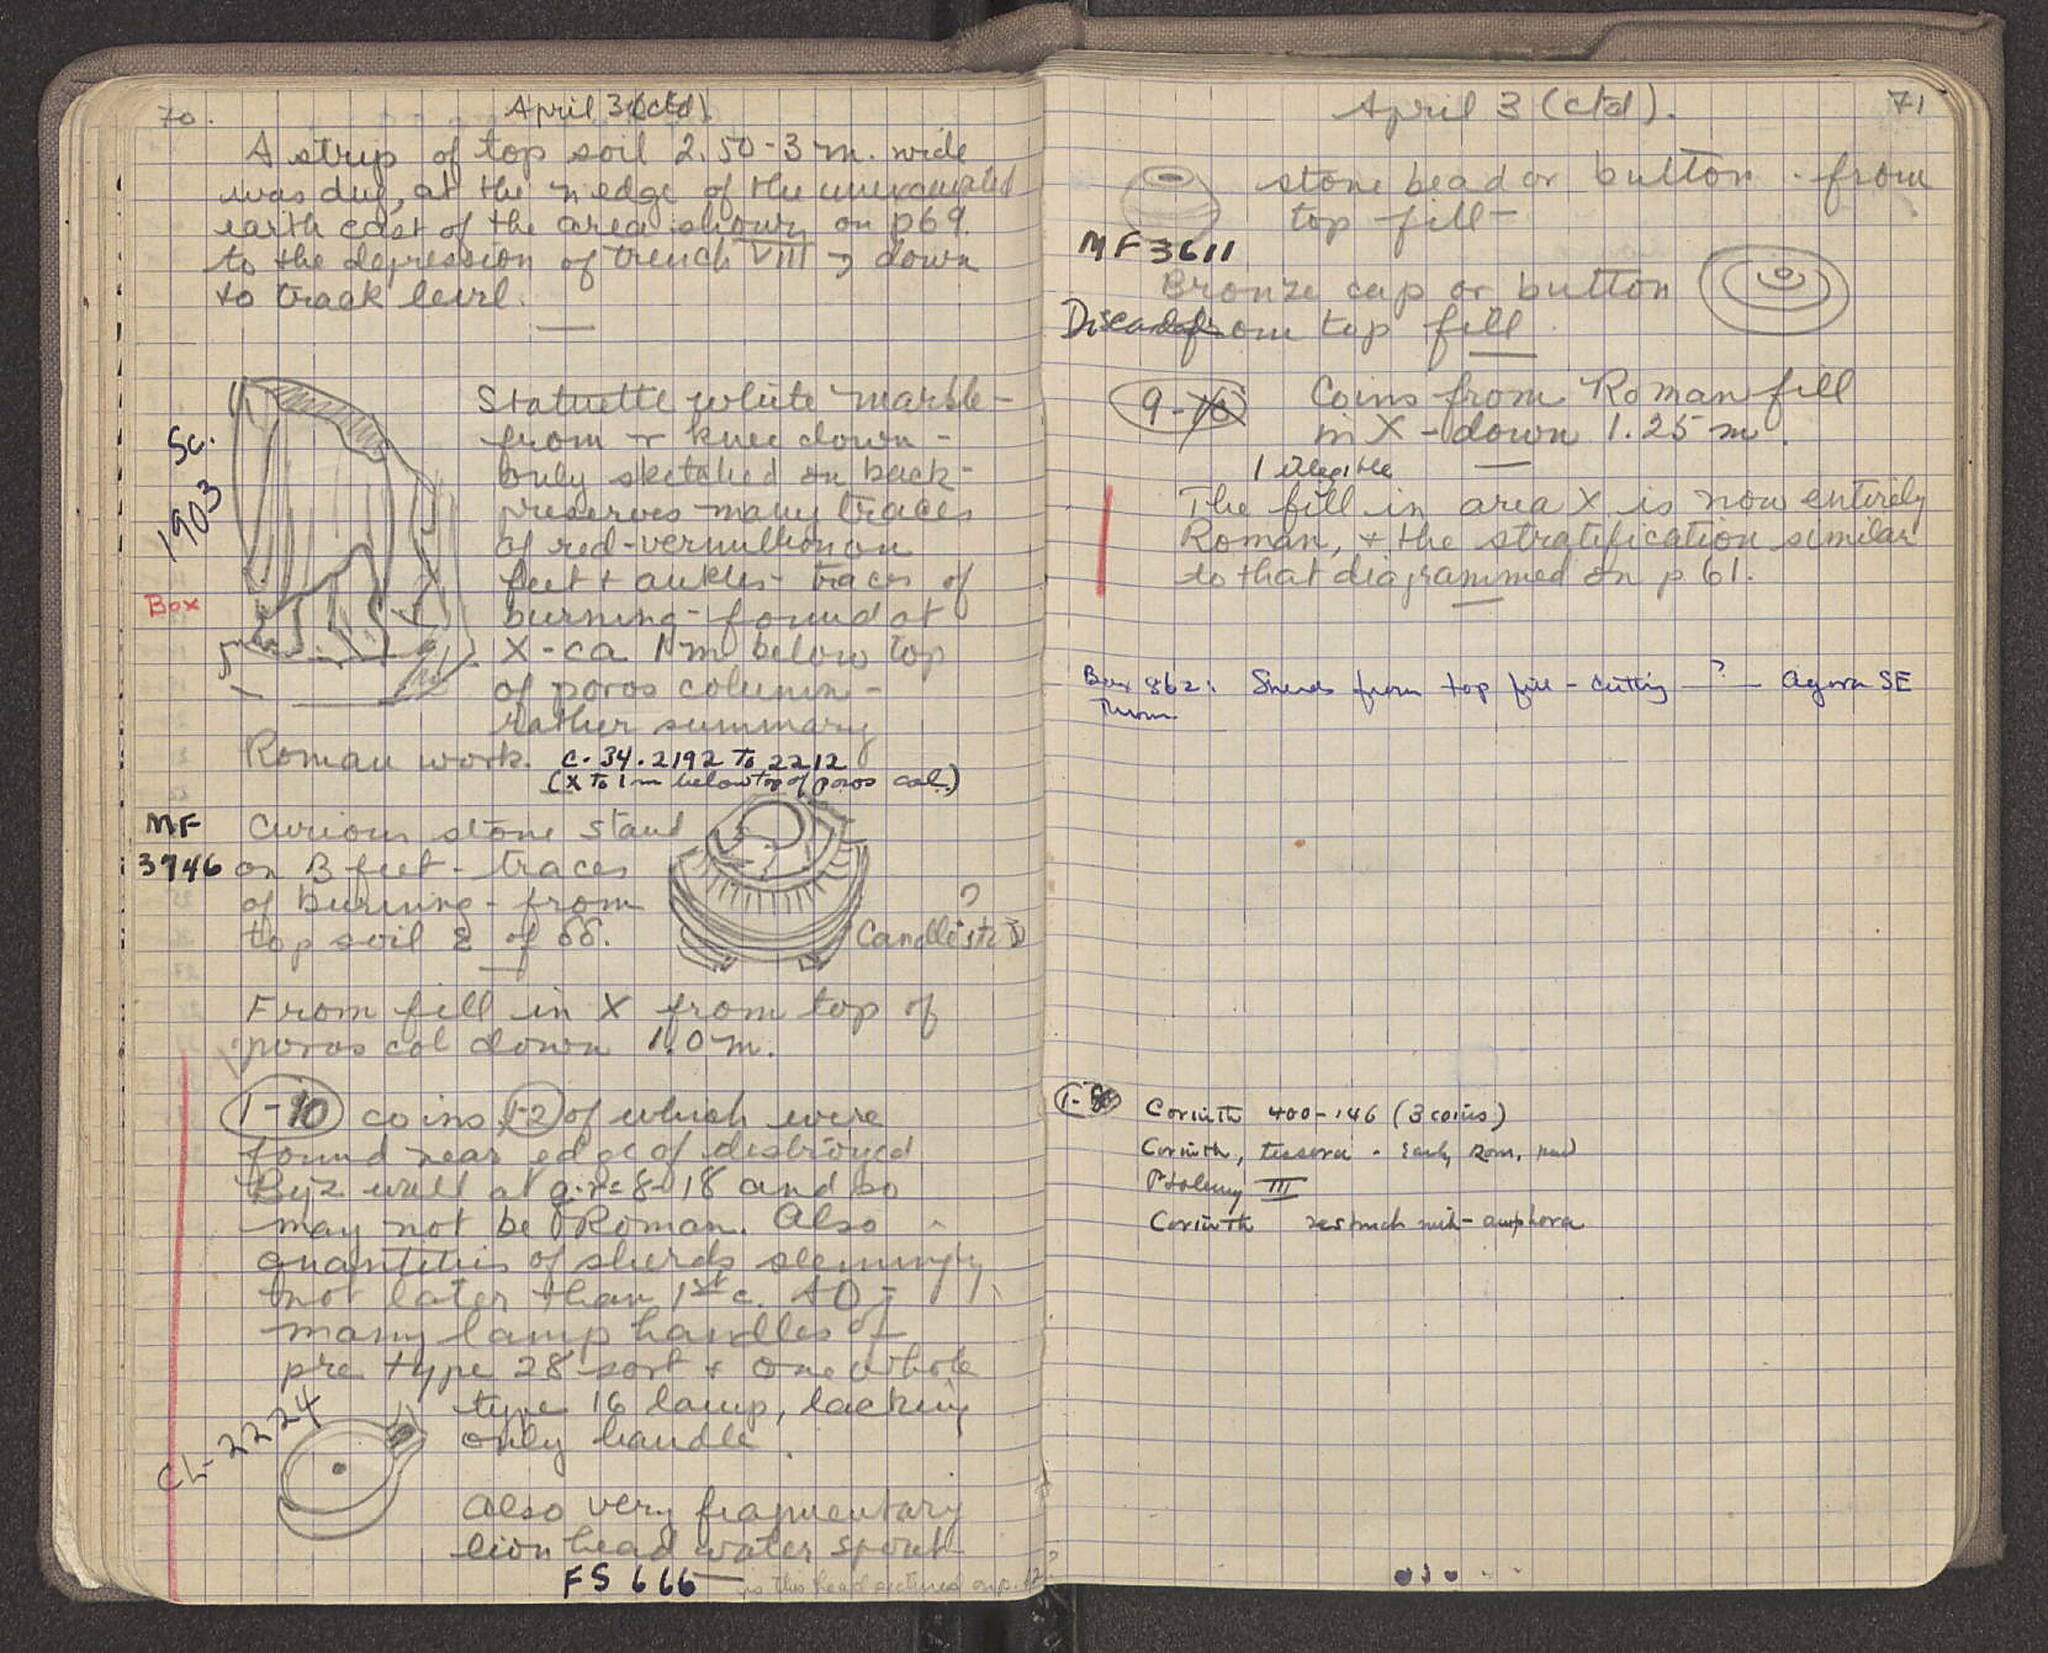 70.
April 3 (ctd).
A strip of top soil 2.50-3 m. wide
was dug, at the n edge of the unexcavated
earth east of the area shown on p 69.
to the depression of trench VIII → down
to track level.
Sc.
1903
Box
Statuette white marble -
from r knee down -
only sketched on back -
preserves many traces
of red-vermillion on
feet + ankles - traces of
burning - found at
X - ca 1 m below top
of poros column -
rather summary
Roman work.
C. 34. 2192 To 2212
(X To 1 m below top of poros col.)
MF
3946
Curious stone stand
on 3 feet - traces
of burning - from
top soil E of δδ.
?
Candlestick
From fill in X from top of
poros col down 1.0 m.
1-10 coins 1-2 of which were
found near edge of destroyed
Byz wall at
may not be Roman. Also
quantities of sherds seemingly
not later than 1st c. AD -
many lamp handles of
pre type 28 sort + one whole
type 16 lamp, lacking
only handle.
CL-2224
Also very fragmentary
lion head water spout
FS 666
is this head pictured on p.
April 3 (ctd).
71
stone bead or button - from
top fill -
MF 3611
Bronze cap or button
Discarded from top fill
9-10 Coins from Roman fill
in X - down 1.25 m.
1 illegible
The fill in area X is now entirely
Roman, + the stratification similar
to that diagrammed on p 61.
Box 862: Sherds from top fill - cutting - ? - Agora SE
1-
Corinth 400-146 (3 coins)
Corinth, tessera - Early Rom. per
Ptolemy III
Corinth restruck with - amphora